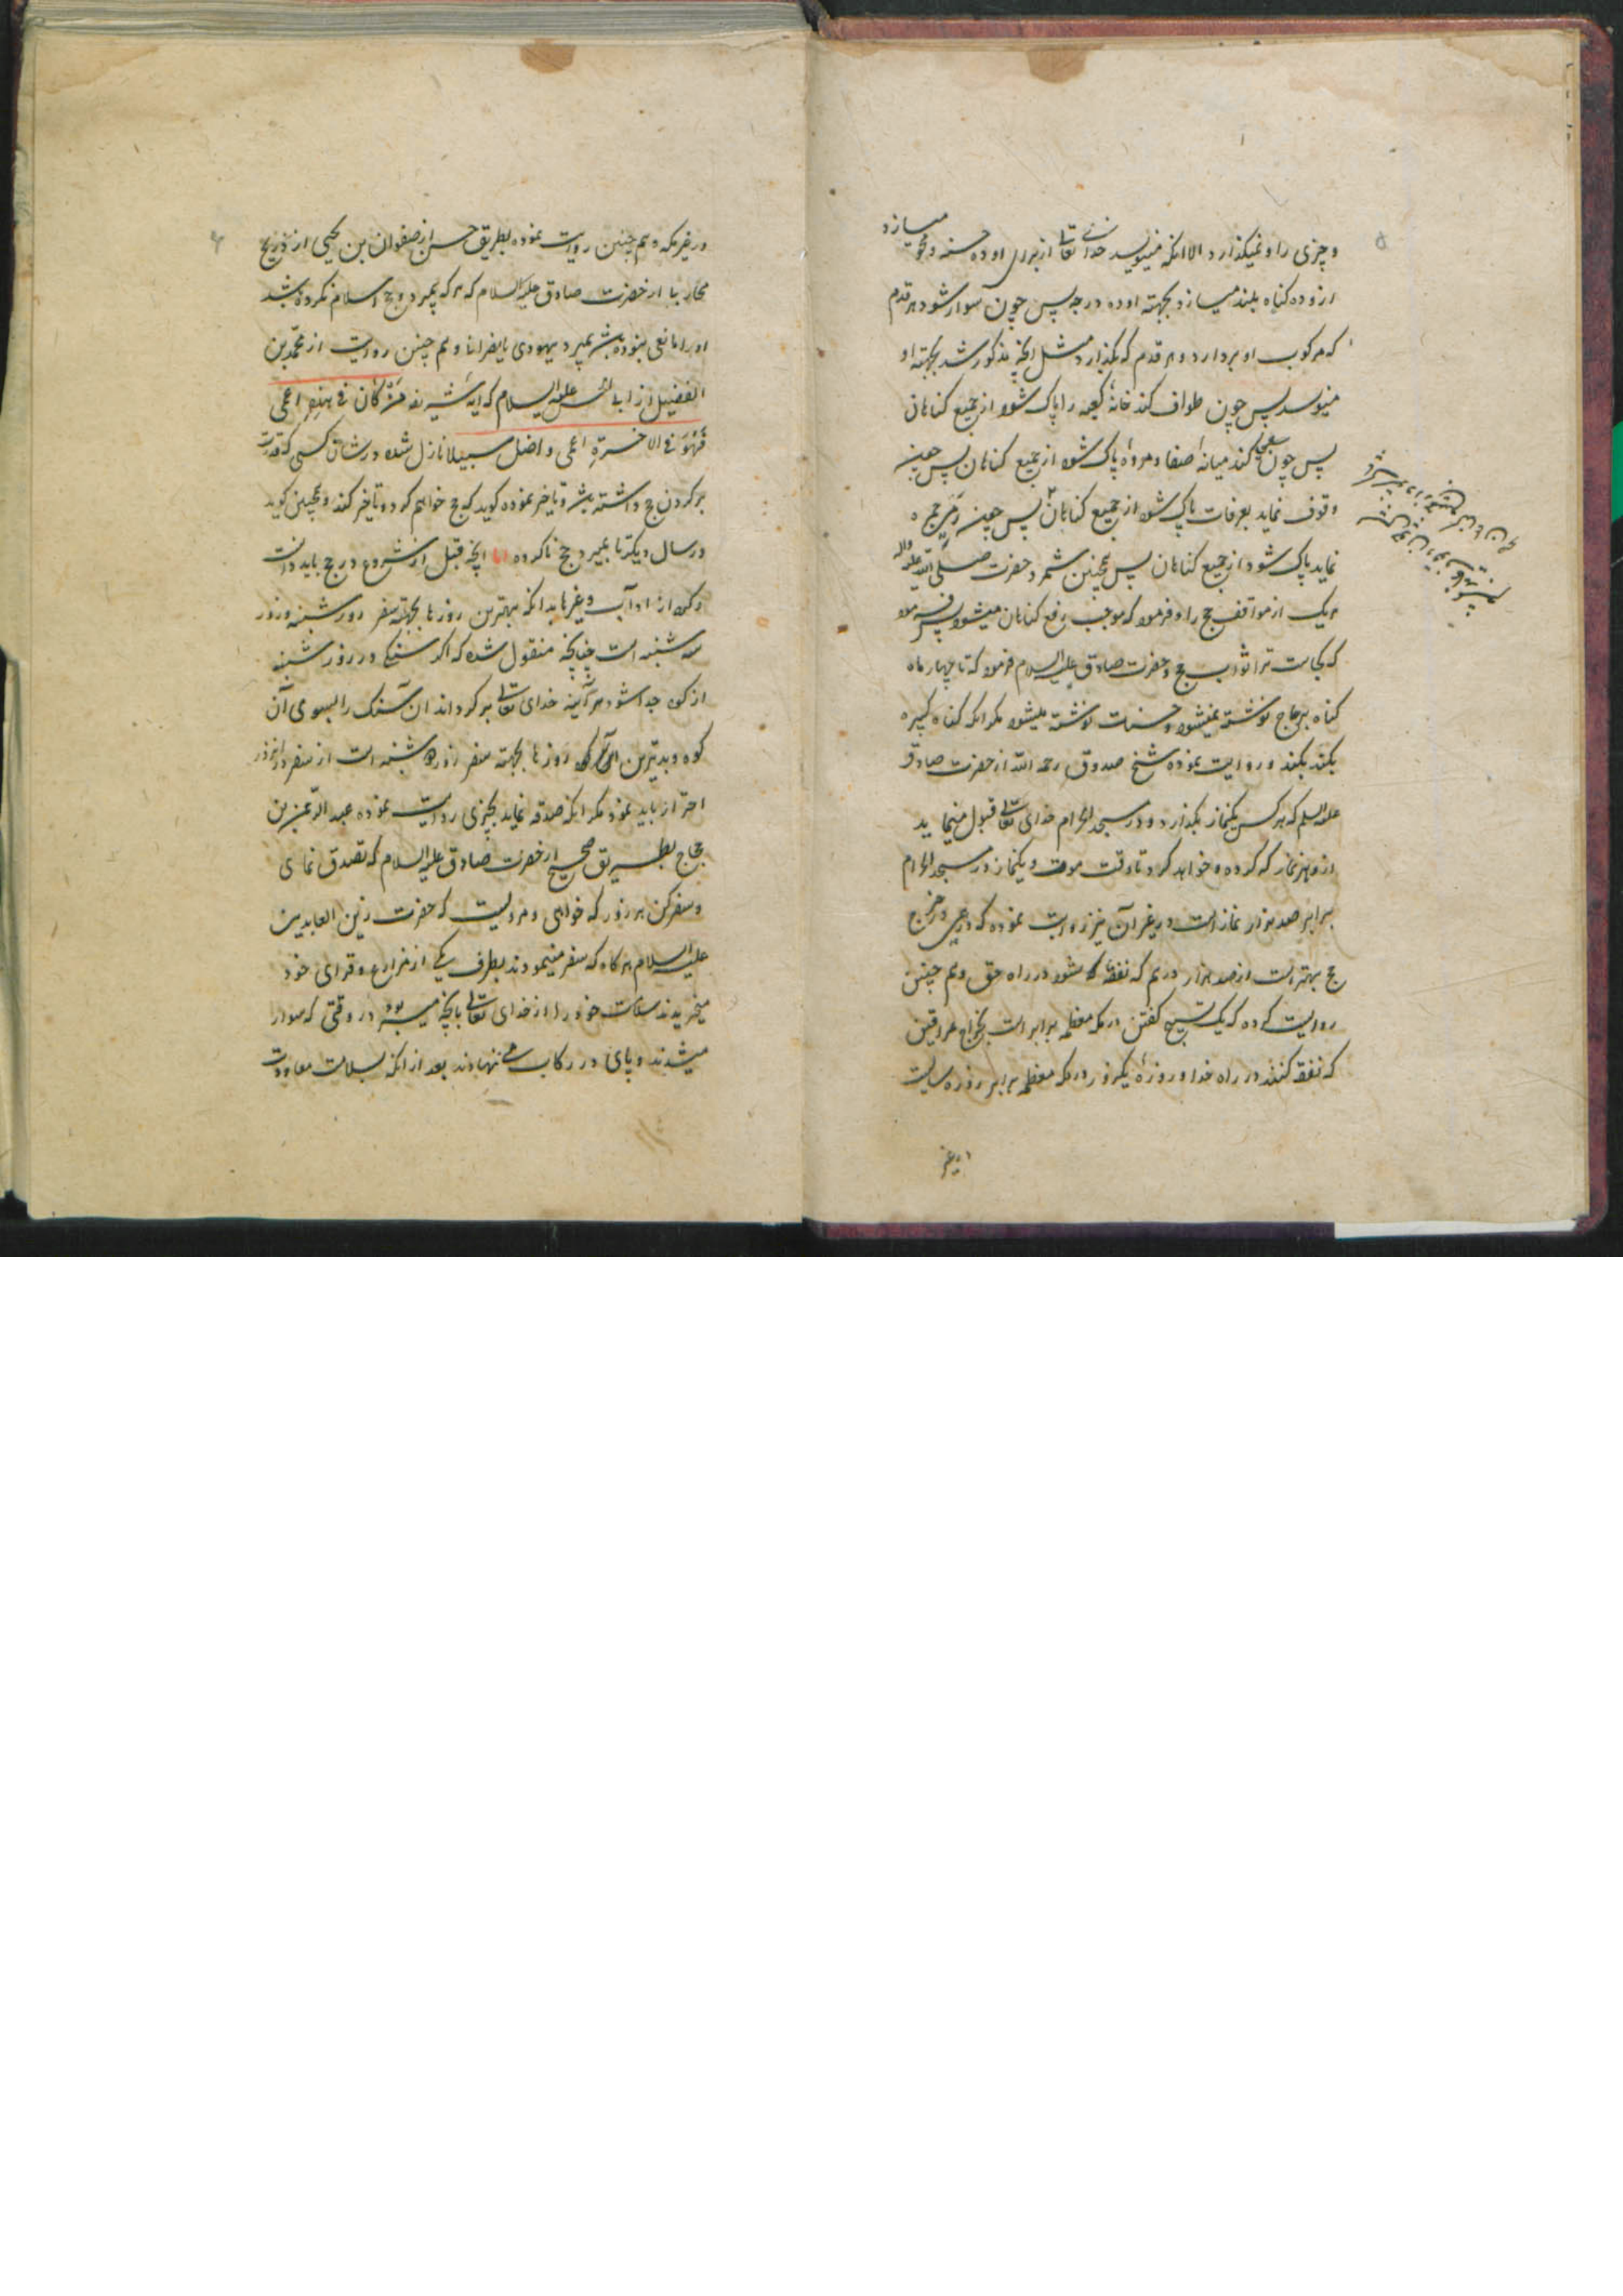 و چیزی را و نمیکذارد الا انکه مینویسد خدای تعالی از برای او ده حسنه و محو میسازد
ازو ده کناه و بلند میسازد بجهته او ده درجه پس چون سوار شود هر قدم
که مرکوب او بردارد و هر قدم که بکذارد مثل انچه مذکور شد بجهته او
مینویسد پس چون طواف کند خانهٔ کعبه را پاک شود از جمیع کناهان
پس چون سعی کند میانهٔ صفا و مروه پاک شود از جمیع کناهان پس چون
وقوف نماید بعرفات پاک شود از جمیع کناهان پس چون رمی جمره
نماید پاک شود از جمیع کناهان پس همچنین شمرد حضرت صلی الله علیه واله
هریک از مواقف حج را و فرمود که موجب رفع کناهان میشود پس فرمود
که کجاست ترا ثواب حج و حضرت صادق علیه السلام فرمود که تا چهار ماه
کناه بر حاج نوشته نمیشود و حسنات نوشته میشود مکر انکه کناه کبیره
بکند و روایت نموده شیخ صدوق رحمه الله از حضرت صادق
علیه السلم که هر کس یکنماز بکذارد در مسجد الحرام خدای تعالی قبول مینماید
ازو هر نماز که کرده و خواهد کرد تا وقت موت و یکنماز در مسجد الحرام
برابر صد هزار نماز است در غیر آن نیز روایت نموده که درهمی در خرج
حج بهتر است از صد هزار درهم که نفقه شود در راه حق و هم چنین
روایت کرده که یک تسبیح کفتن در مکه معظمه برابر است بخراج عراقین
که نفقه کنند در راه خدا و روزهٔ یکروز در مکه معظمه برابر روزه سالیست
در غیر
در غیر مکه و هم چنین روایت نموده بطریق حسن از صفوان بن یحیی از ذریح
محاربی از حضرت صادق علیه السلام که هر که بمیرد و حج اسلام نکرده باشد
او را مانعی نبوده باشد بمیرد یهودی یا نصرانی و هم چنین روایت از محمد بن
الفضیل از ابی الحسن علیه السلام که آیه شریفه مَنْ کان فی هذه اعمی
فَهُوَ فی الاخرةِ اعمی و اضل سبیلا نازل شده در شان کسی که قدرت
بر کردن حج داشته باشد و تاخیر نموده کوید که حج خواهم کرد و تاخیر کند و همچنین کوید
در سال دیکر تا بمیرد و حج ناکرده اما انچه قبل از شروع در حج باید دانست
و کرد از اداب و غیرها بدانکه بهترین روزها بجهته سفر روز شنبه و روز
سه شنبه است چنانچه منقول شده که اکر سنکی در روز شنبه
از کوه جدا شود هر آینه خدای تعالی بر کرداند آن سنک را بسوی آن
کوه و بدترین روزها بجهته سفر روز دوشنبه است از سفر در انروز
احتراز باید نمود مکر انکه صدقه نماید بچیزی روایت نموده عبد الرحمن بن
حجاج بطریق صحیح از حضرت صادق علیه السلام که تصدق نمای
و سفر کن هر روز که خواهی و مرویست که حضرت زین العابدین
علیه السلام هرکاه که سفر مینمودند بطرف یکی از مزارع و قرای خود
میخریدند سلامت خود را از خدای تعالی بانچه میسر بود در وقتی که سوار
میشدند و پای در رکاب می نهادند بعد از انکه بسلامت معاودت